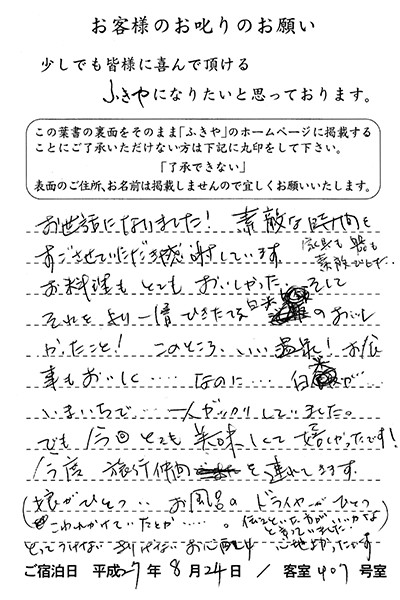 お客様のお叱りのお願い
少しでも皆様に喜んで頂ける
ふきやになりたいと思っております。
この葉書の裏面をそのまま「ふきや」のホームページに掲載する
ことにご了承いただけない方は下記に丸印をして下さい。
「了承できない」
表面のご住所、お名前は掲載しませんので宜しくお願いいたします。
お世話になりました！ 素敵な時間を
すごさせていただき感謝しています。
家具も 器も
素敵でした..
お料理も とても おいしかった。 そして
それを より一層 ひきたてる 白米 のおいし
かったこと！ このところ、いい 温泉！ お食
事もおいしく‥‥ なのに‥‥ 白米が‥
いまいちで‥‥ 一人ガッカリしていました。
でも 今回 とても 美味しくて 嬉しかったです！
今度 旅行仲間 を 連れてきます。
(娘がひとつ‥ お風呂の ドライヤーが ひとつ
こわれかけていたとか‥‥。 伝えといた方が いいかなと
思っていました
とってつけない さりげない お心配り 心地よかったです
ご宿泊日 平成27年 8月24日 ／ 客室 407 号室